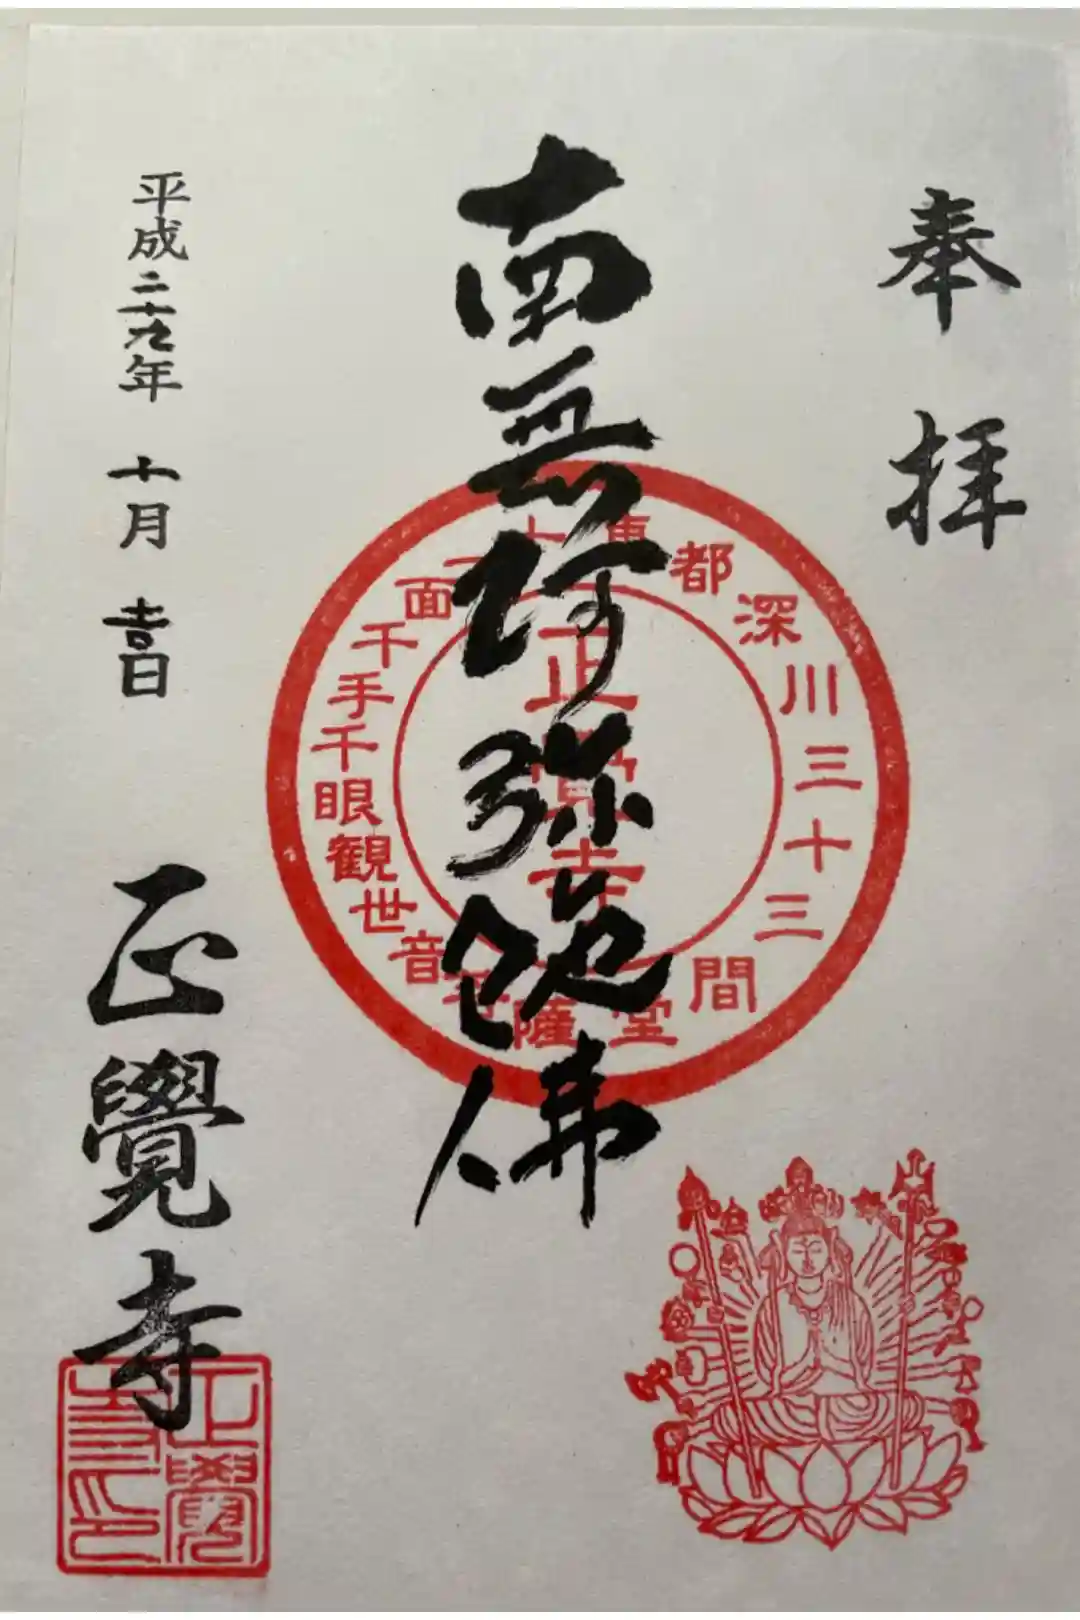 奉拝
南無阿弥陀佛
東都深川三十三間堂
十一面千手千眼観世音菩薩
正覺寺
平成二十九年 十月 吉日
正覺寺
正覺寺印